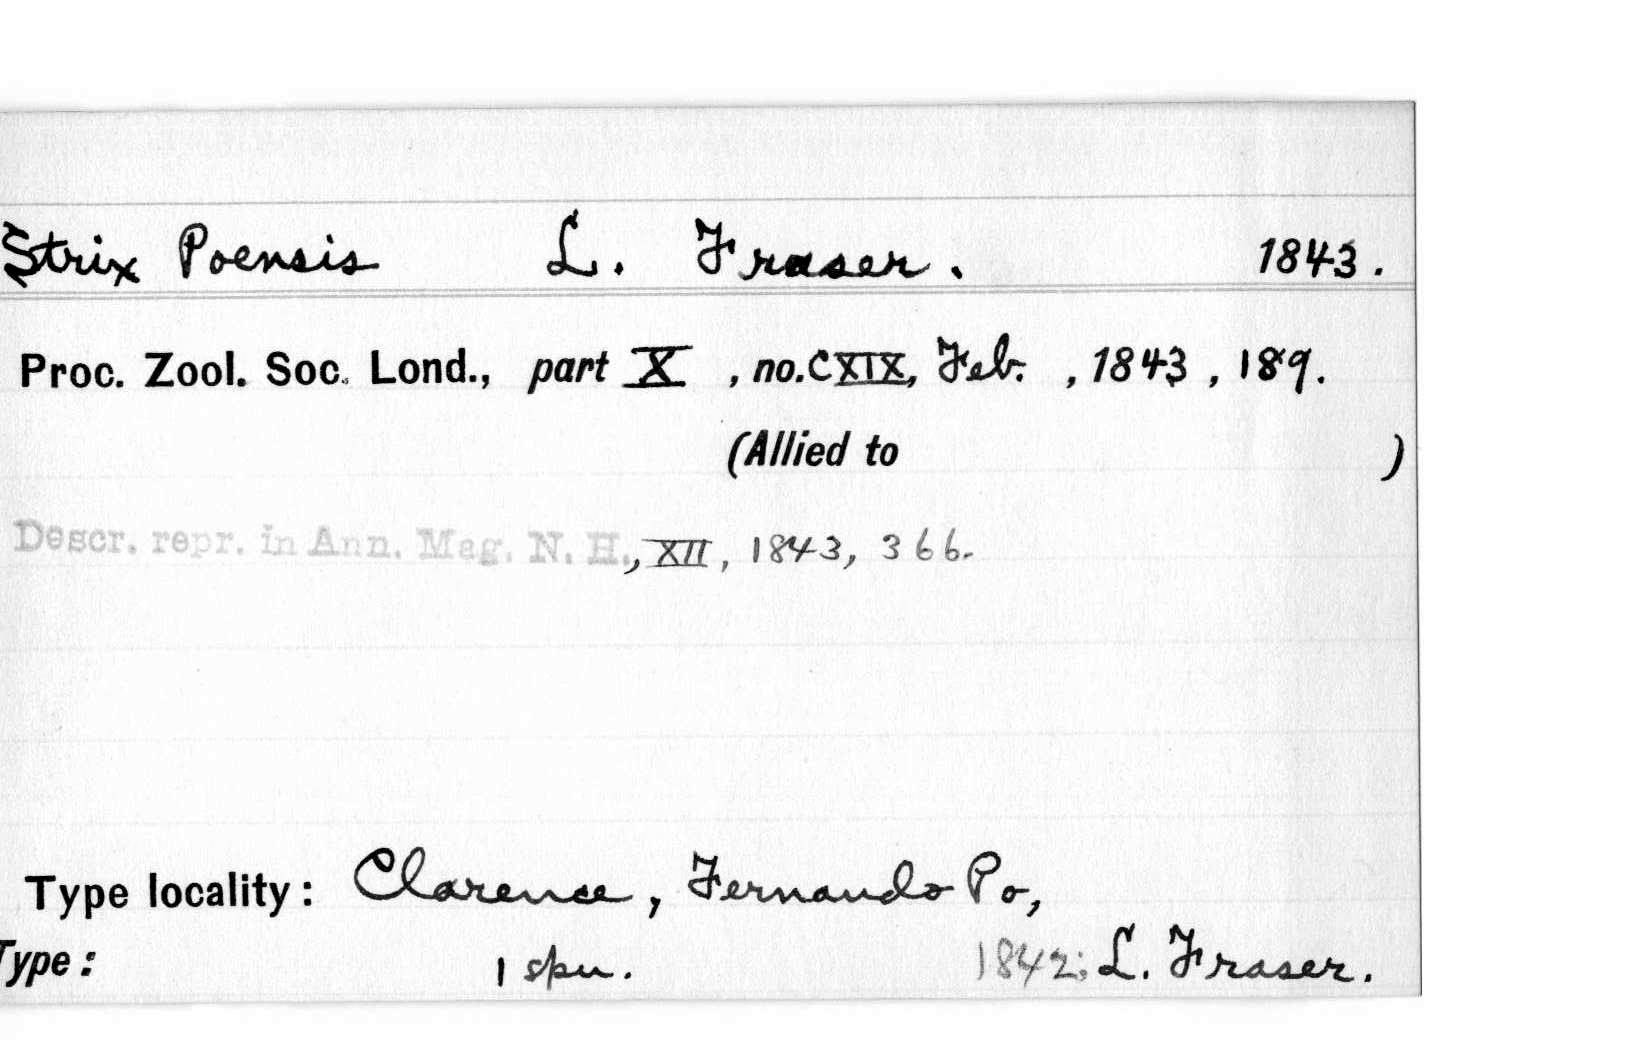 Strix Poensis L. Fraser. 1843.
Proc. Zool. Soc. Lond., part X, no. CXIX, Feb. , 1843, 189.
(Allied to )
Descr. repr. in Ann. Mag. N. H., XII, 1843, 366.
Type locality: Clarence, Fernando Po,
Type: 1 spm. 1842; L. Fraser.